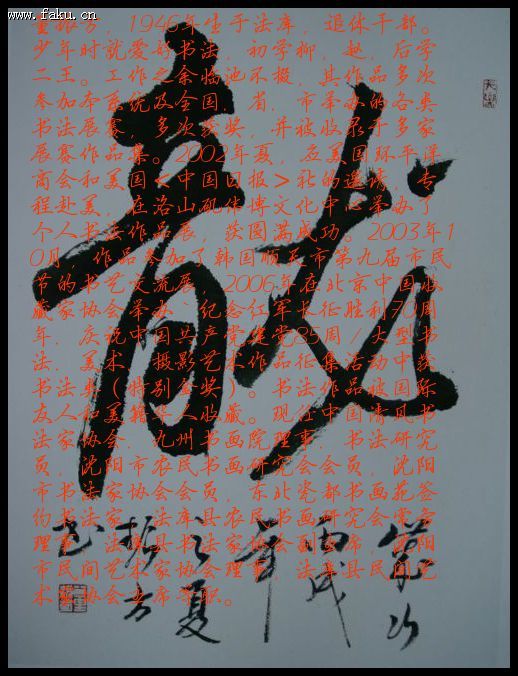 www.faku.cn
1946年生于法库，退休干部。
少年时就爱好书法，初学柳，赵，后学
二王。工作之余临池不辍，其作品多次
参加本系统及全国，省，市举办的各类
书法展赛，多次获奖，并被收录于多家
展赛作品集。2002年夏，应美国环平洋
商会和美国＜中国日报＞社的邀请，专
程赴美，在洛山矶伟博文化中心举办了
个人书法作品展，获圆满成功。2003年1
0月，作品参加了韩国顺天市第九届市民
节的书艺交流展。2006年在北京中国收
藏家协会举办 纪念红军长征胜利70周
年，庆祝中国共产党建党85周／大型书
法，美术，摄影艺术作品征集活动中获
书法类（特别金奖）。书法作品被国际
友人和美籍华人收藏。现任中国清风书
法家协会，九州书画院理事，书法研究
员，沈阳市农民书画研究会会员，沈阳
市书法家协会会员，东北瓷都书画苑签
约书法家，法库县农民书画研究会常务
理事，法库县书法家协会副主席，沈阳
市民间艺术家协会理事，法库县民间艺
术家协会主席等职。
丙戌
年
之夏
哲方
书